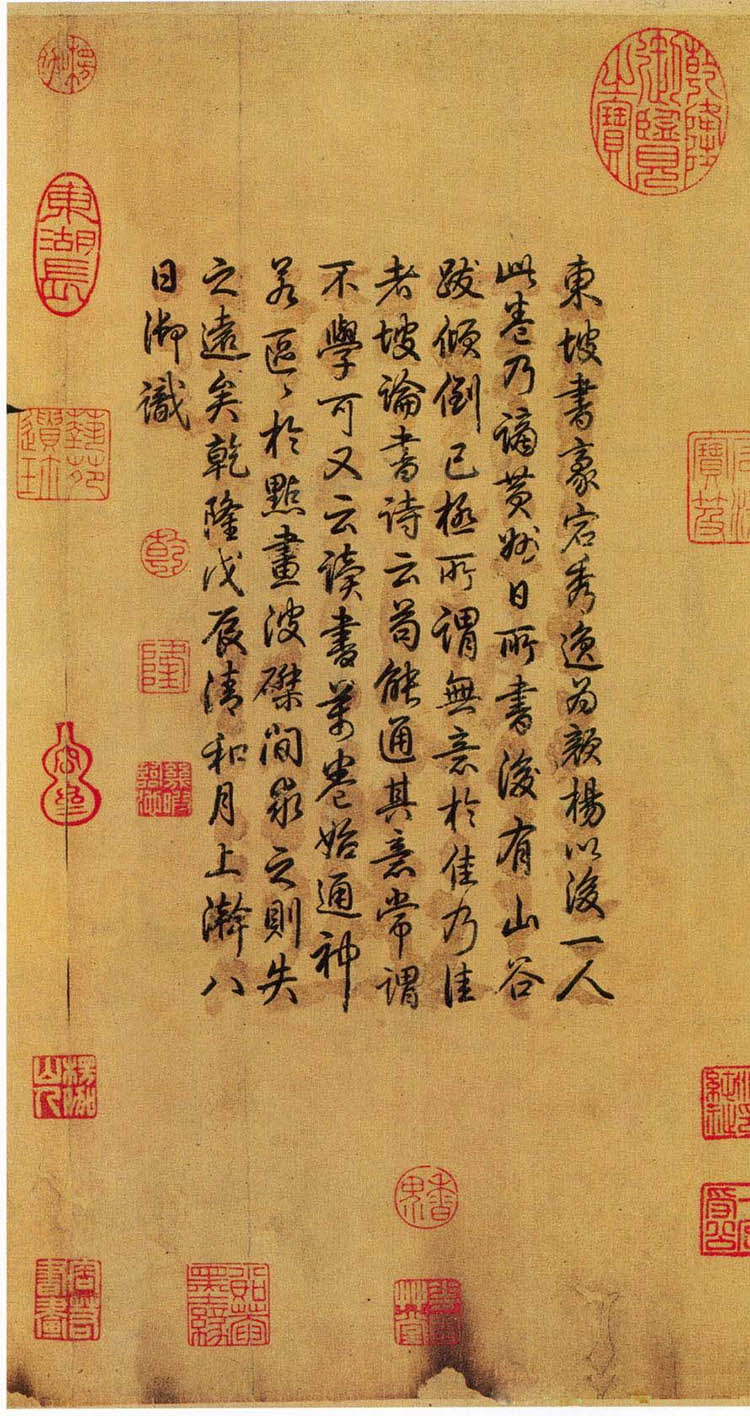 東坡書豪宕秀逸為顏楊以後一人
此卷乃謫黃州日所書後有山谷
跋傾倒已極所謂無意於佳乃佳
者坡論書詩云苟能通其意常謂
不學可又云讀書萬卷始通神
若區〻於點畫波磔間求之則失
之遠矣乾隆戊辰清和月上澣八
日御識
乾隆御覽之寶
東湖長
乾
隆
楞伽山人